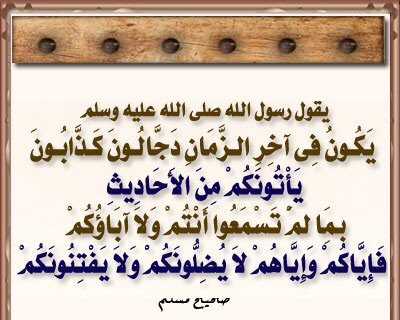 يقول رسول الله صلى الله عليه وسلم
يَكُونُ فِى آخِرِ الزَّمَانِ دَجَّالُونَ كَذَّابُونَ
يَأْتُونَكُمْ مِنَ الأَحَادِيثِ
بِمَا لَمْ تَسْمَعُوا أَنْتُمْ وَلاَ آبَاؤُكُمْ
فَإِيَّاكُمْ وَإِيَّاهُمْ لاَ يُضِلُّونَكُمْ وَلاَ يَفْتِنُونَكُمْ
صحيح مسلم